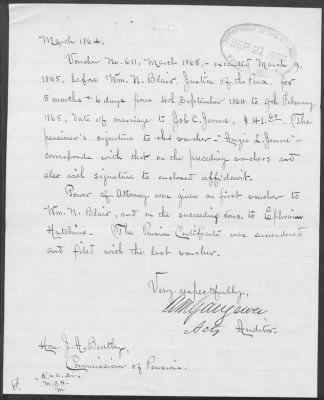 March 1864.
Voucher No. 611, March 1865, - executed March 9,
1865, before Wm. N. Blair, Justice of the Peace. for
5 months & 6 days from 4th September 1864 to 9th February
1865, date of marriage to Job C. Jenne, $41.60 - The
pensioner's signature to this voucher - "Angie L. Jenne" -
corresponds with that on the preceding vouchers and
also with signature to enclosed affidavit.
Power of Attorney was given on first voucher to
Wm. N. Blair, and on the succeeding ones to Ephraim
Hutchins. The Pension Certificate was surrendered
and filed with the last voucher.
Very respectfully,
Actg Auditor.
Hon. J. A. Bentley,
Commissioner of Pensions.
SEP 21